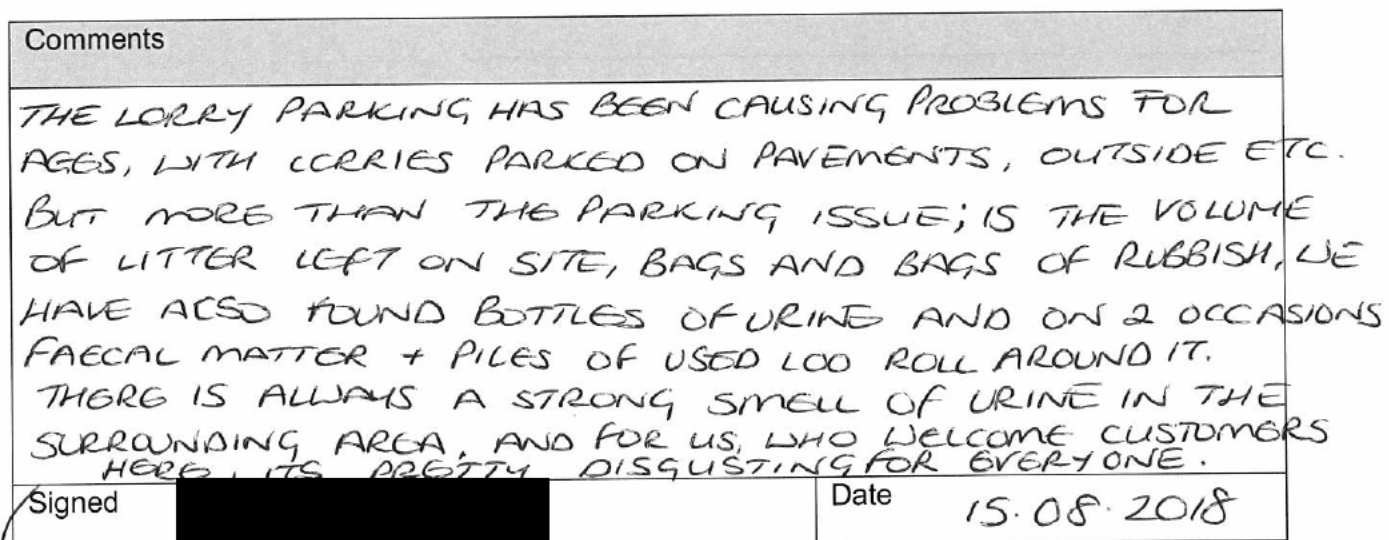 Comments
THE LORRY PARKING HAS BEEN CAUSING PROBLEMS FOR
AGES, WITH LORRIES PARKED ON PAVEMENTS, OUTSIDE ETC.
BUT MORE THAN THE PARKING ISSUE; IS THE VOLUME
OF LITTER LEFT ON SITE, BAGS AND BAGS OF RUBBISH, WE
HAVE ALSO FOUND BOTTLES OF URINE AND ON 2 OCCASIONS
FAECAL MATTER + PILES OF USED LOO ROLL AROUND IT.
THERE IS ALWAYS A STRONG SMELL OF URINE IN THE
SURROUNDING AREA, AND FOR US, WHO WELCOME CUSTOMERS
HERE, ITS PRETTY DISGUSTING FOR EVERYONE.
Signed
Date 15.08.2018